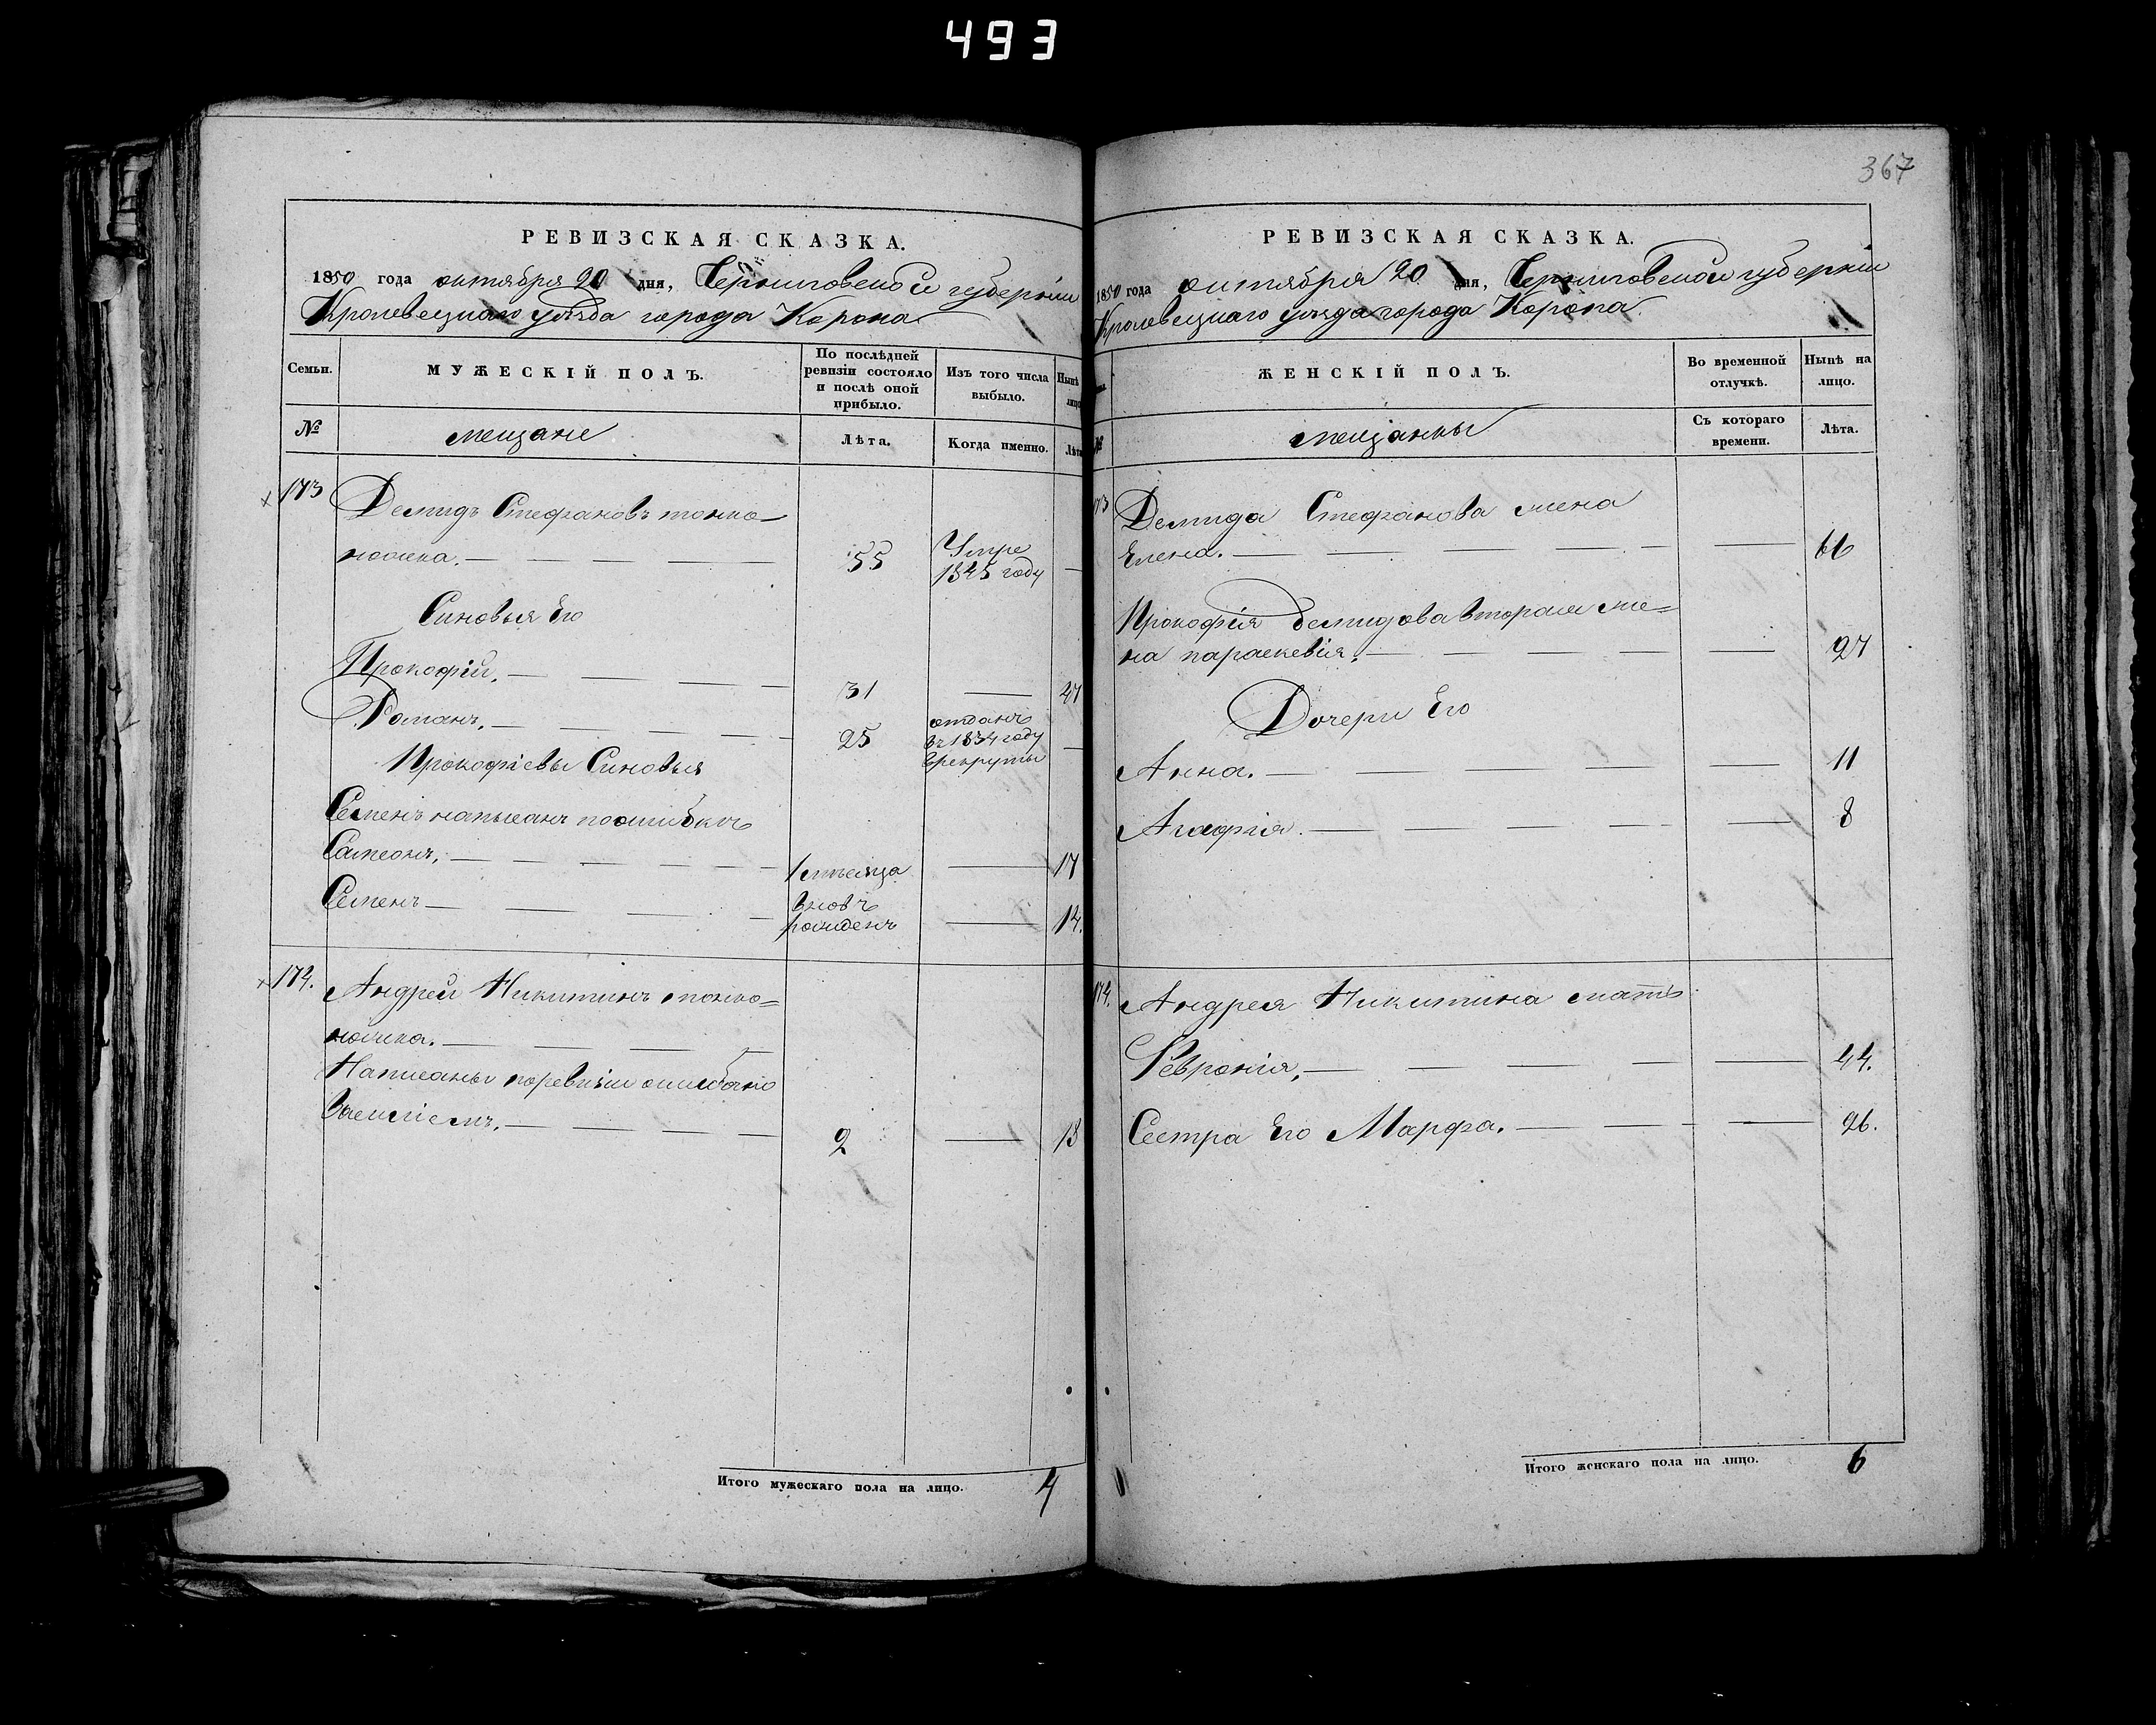 493
367
РЕВИЗСКАЯ СКАЗКА.
1850 года октября 20 дня, Черниговской губерніи
Кролевецкаго уѣзда города Коропа
Семьи.
МУЖЕСКІЙ ПОЛЪ.
По послѣдней ревизіи состояло и послѣ оной прибыло.
Изъ того числа выбыло.
Нынѣ
лицо
№
мещане
Лѣта.
Когда именно.
Лѣта
173
Демидъ Стефановъ тонко-
ножка.
55
Умре
1845 году
Синовья Его
Прокофій.
31
47
Романъ.
25
отданъ
въ 1834 году
в рекруты
Прокофіевы Синовья
Семенъ написанъ поошибкъ
Самеонъ,
1 месяца
17
Семенъ
вновъ
рожденъ
14.
174.
Андрей Никитинъ тонко=
ножка.
Написаны поревизіи ошибочно
2
18
Итого мужескаго пола на лицо.
4
РЕВИЗСКАЯ СКАЗКА.
1850 года октября 20 дня, Черниговской губерніи
Кролевецкаго уѣзда города Коропа.
ЖЕНСКІЙ ПОЛЪ.
Во временной отлучкѣ.
Нынѣ на лицо.
№
мещанки
Съ котораго времени.
Лѣта.
173
Демида Стефанова жена
Елена.
66
Прокофія Демидова вторая же=
на параскевія.
27
Дочери Его
Анна.
11
Агафія.
8
174.
Андрея Никитина мать
Февронія,
44.
Сестра Его Марфа.
26.
Итого женскаго пола на лицо.
6